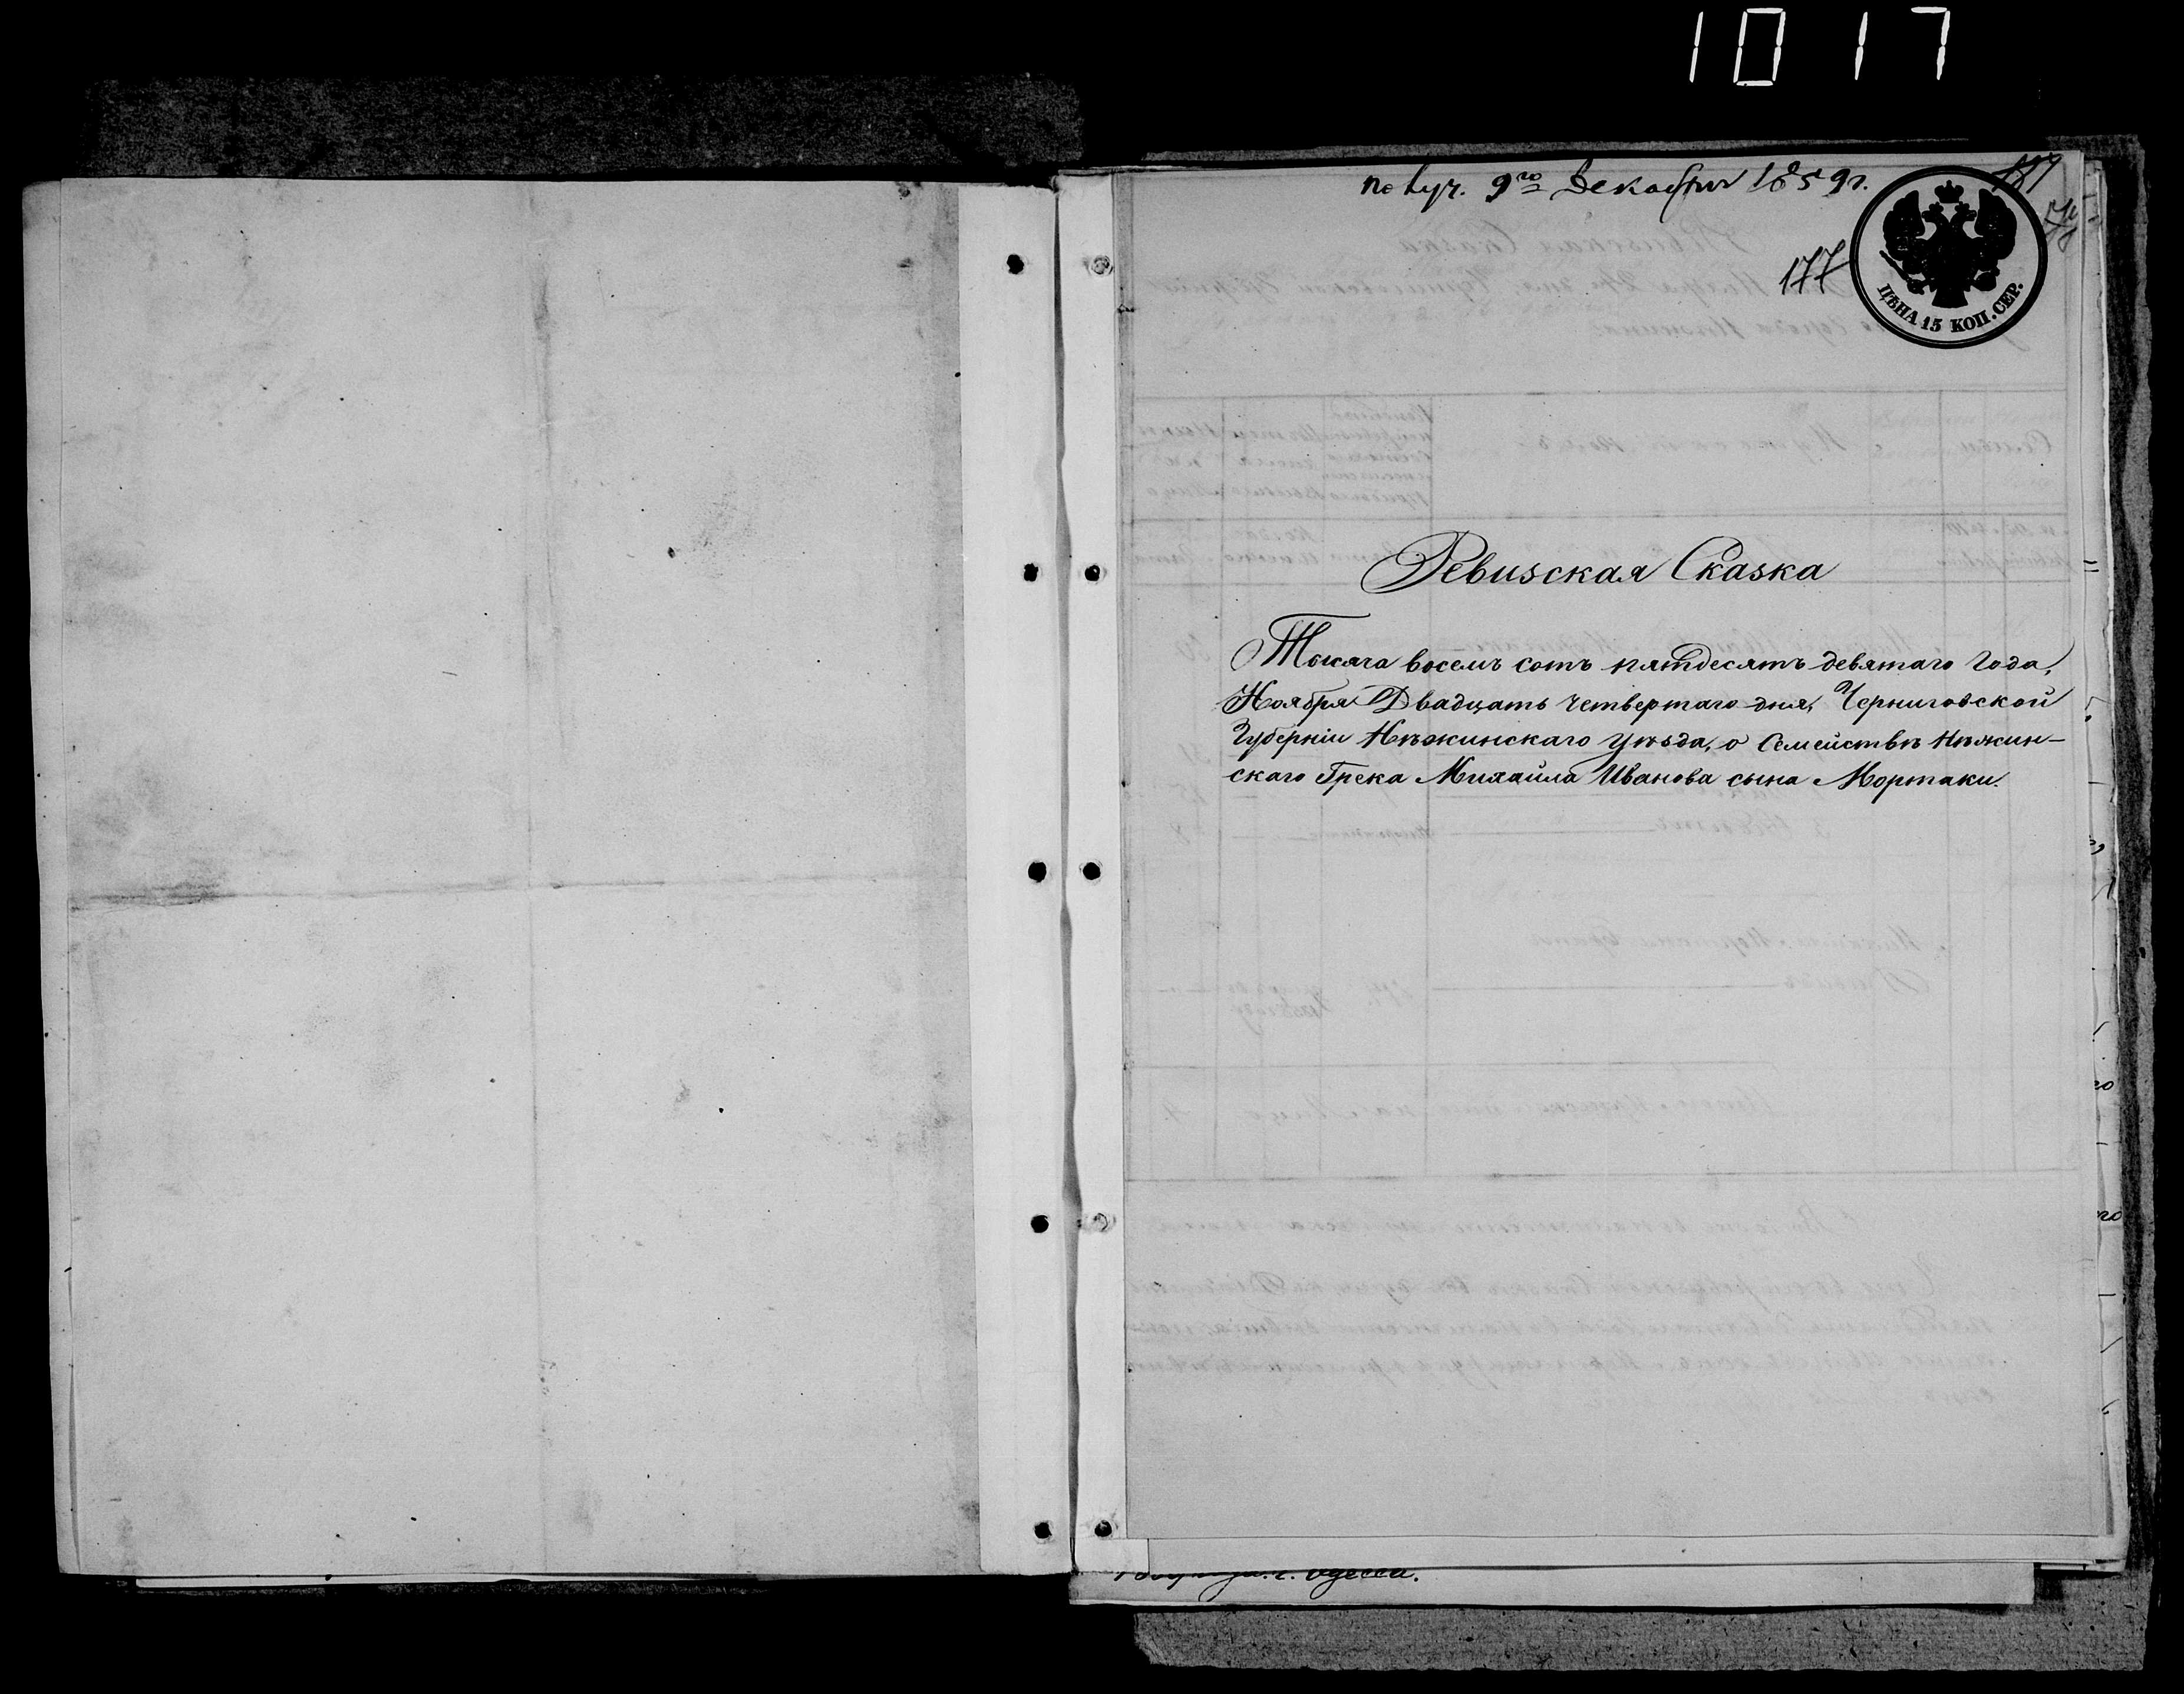 1017
получ. 9го Декабря 1859г.
177
ЦѢНА 15 КОП. СЕР.
Ревизская Сказка
Тысяча восемь сотъ пятдесятъ девятаго Года,
Ноября Двадцать четвертаго дня, Черниговской
Губерніи Нѣжинскаго уѣзда, о Семействѣ Нѣжин-
скаго Грека Михайла Иванова сына Мортаки.
г. Одесса.